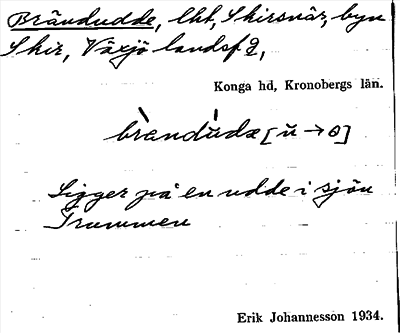 Brändudde, lht, Skirsnäs, byn
Skir, Växjö landsf 2,
Konga hd, Kronobergs län.
brandudæ [ŭ → ]
Ligger på en udde i sjön
Trummen
Erik Johannesson 1934.